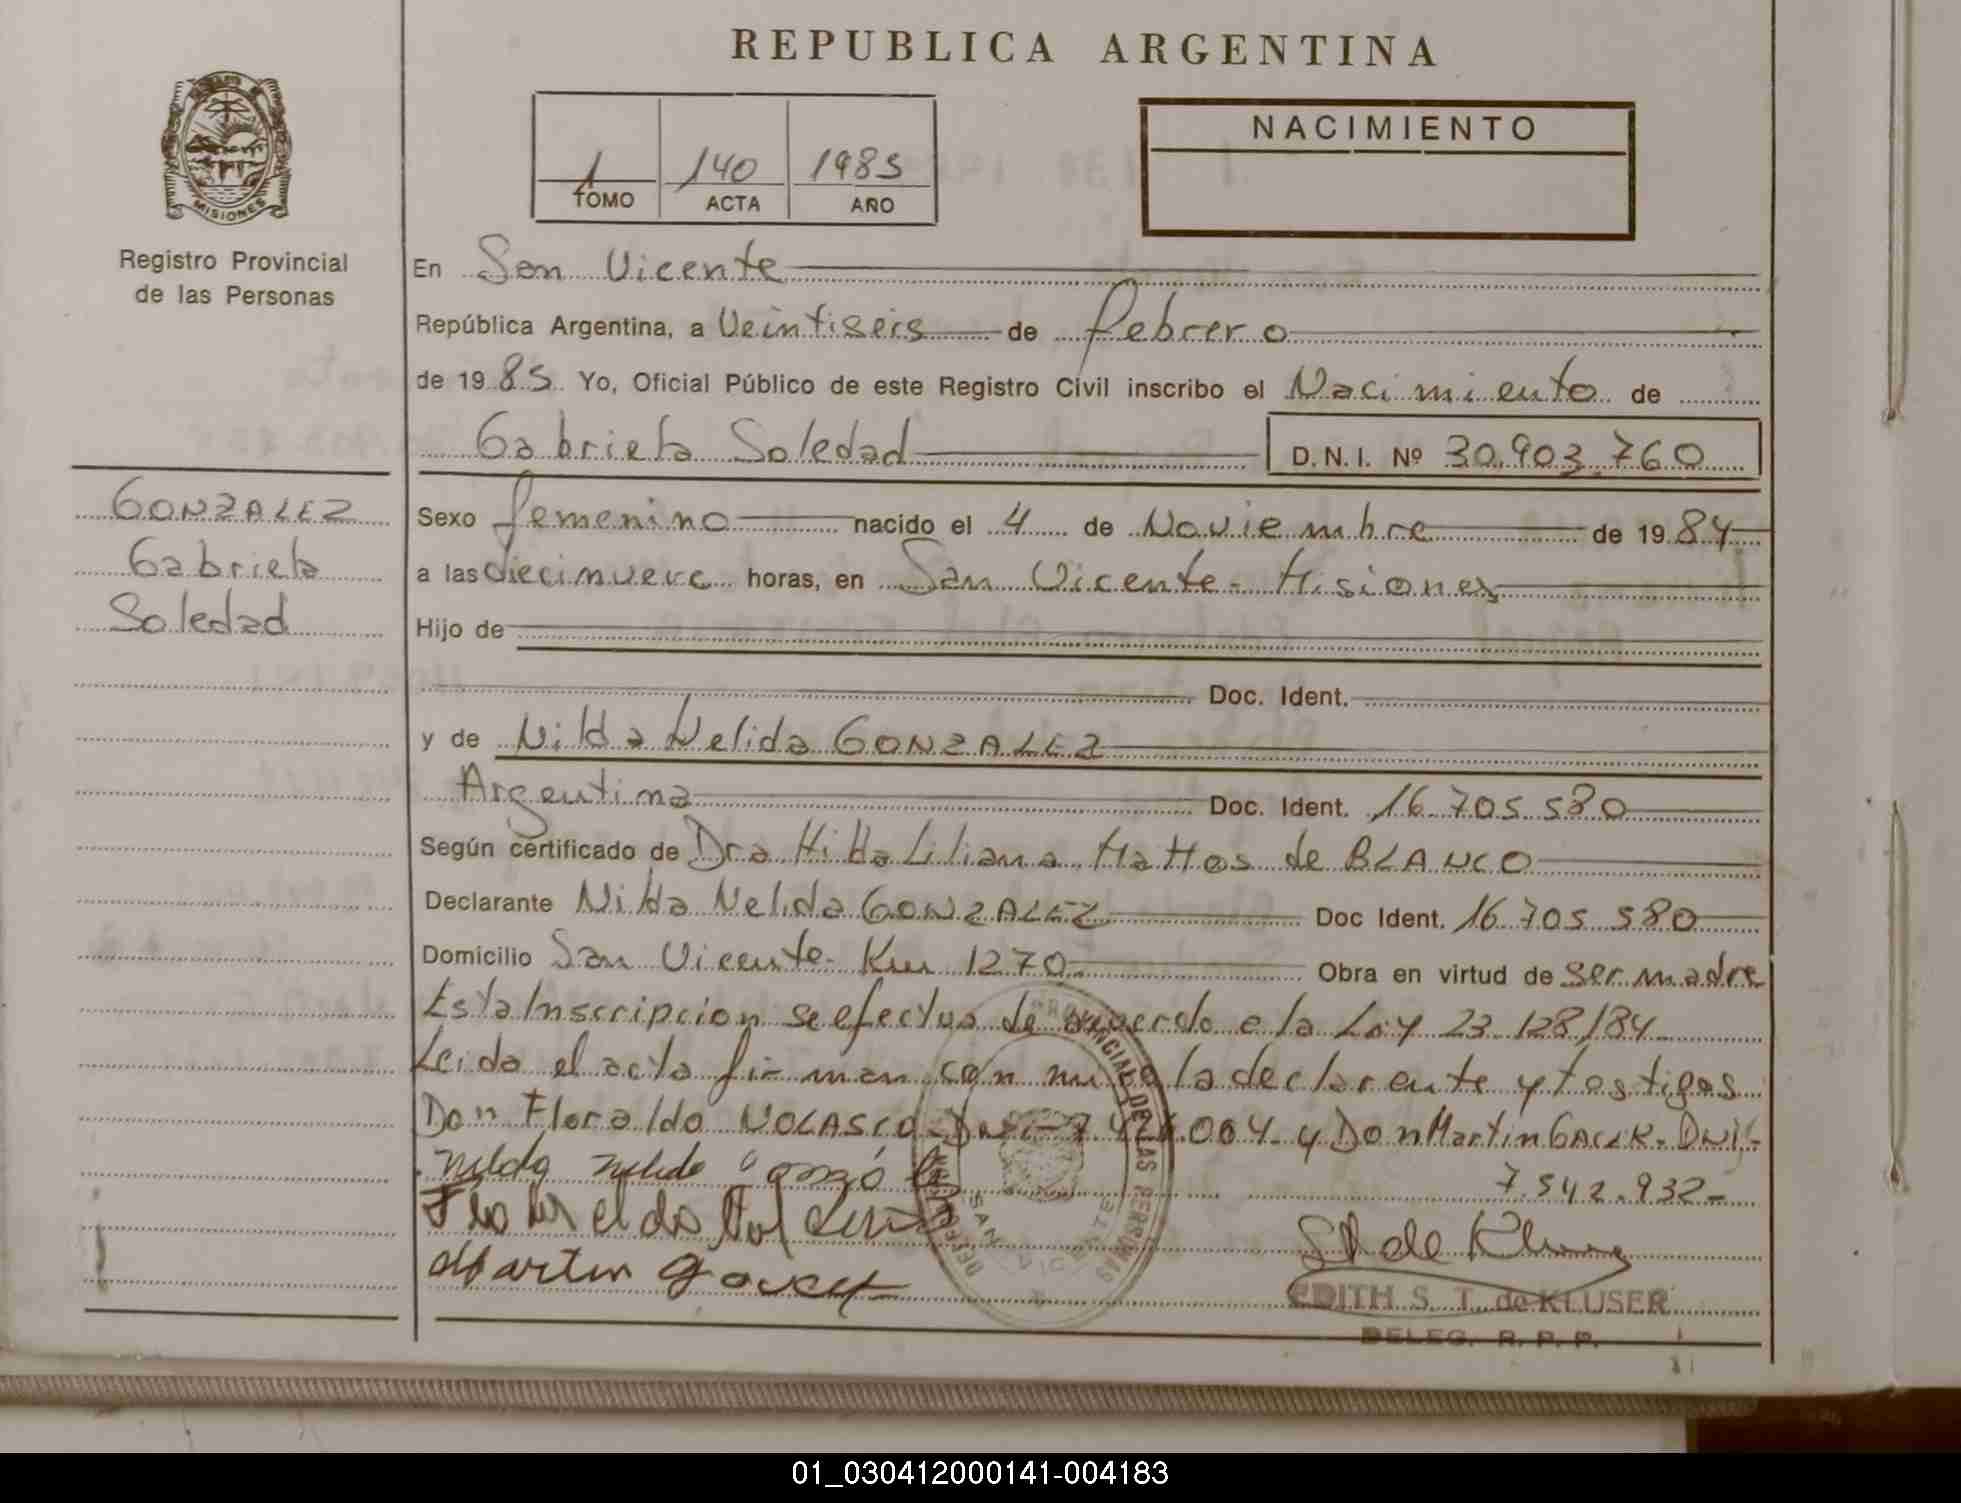 REPUBLICA ARGENTINA
MISIONES
Registro Provincial
de las Personas
1 140 1985
TOMO ACTA AÑO
NACIMIENTO
En San Vicente
República Argentina, a Veintiseis de febrero
de 1985 Yo, Oficial Público de este Registro Civil inscribo el Nacimiento de
Gabriela Soledad D.N.I. Nº 30.903.760
GONZALEZ
Gabriela
Soledad
Sexo femenino nacido el 4 de Noviembre de 1984
a las diecinueve horas, en San Vicente - Misiones
Hijo de
Doc. Ident.
y de Nilda Nelida GONZALEZ
Argentina Doc. Ident. 16.705.580
Según certificado de Dra Hilda Liliana Mattos de BLANCO
Declarante Nilda Nelida GONZALEZ Doc Ident. 16.705.580
Domicilio San Vicente - Km 1270 Obra en virtud de ser madre
Esta Inscripcion se efectua de acuerdo a la Ley 23.128/84
Leida el acta firman con migo la declarante y testigos
Don Floraldo NOLASCO - DNI - 004 - y Don Martin - DNI -
7.542.932 -
PROVINCIAL DE LAS PERSONAS
SAN VICENTE
EDITH S. T. de KLUSER
DELEG. R. P. P.
01_030412000141-004183